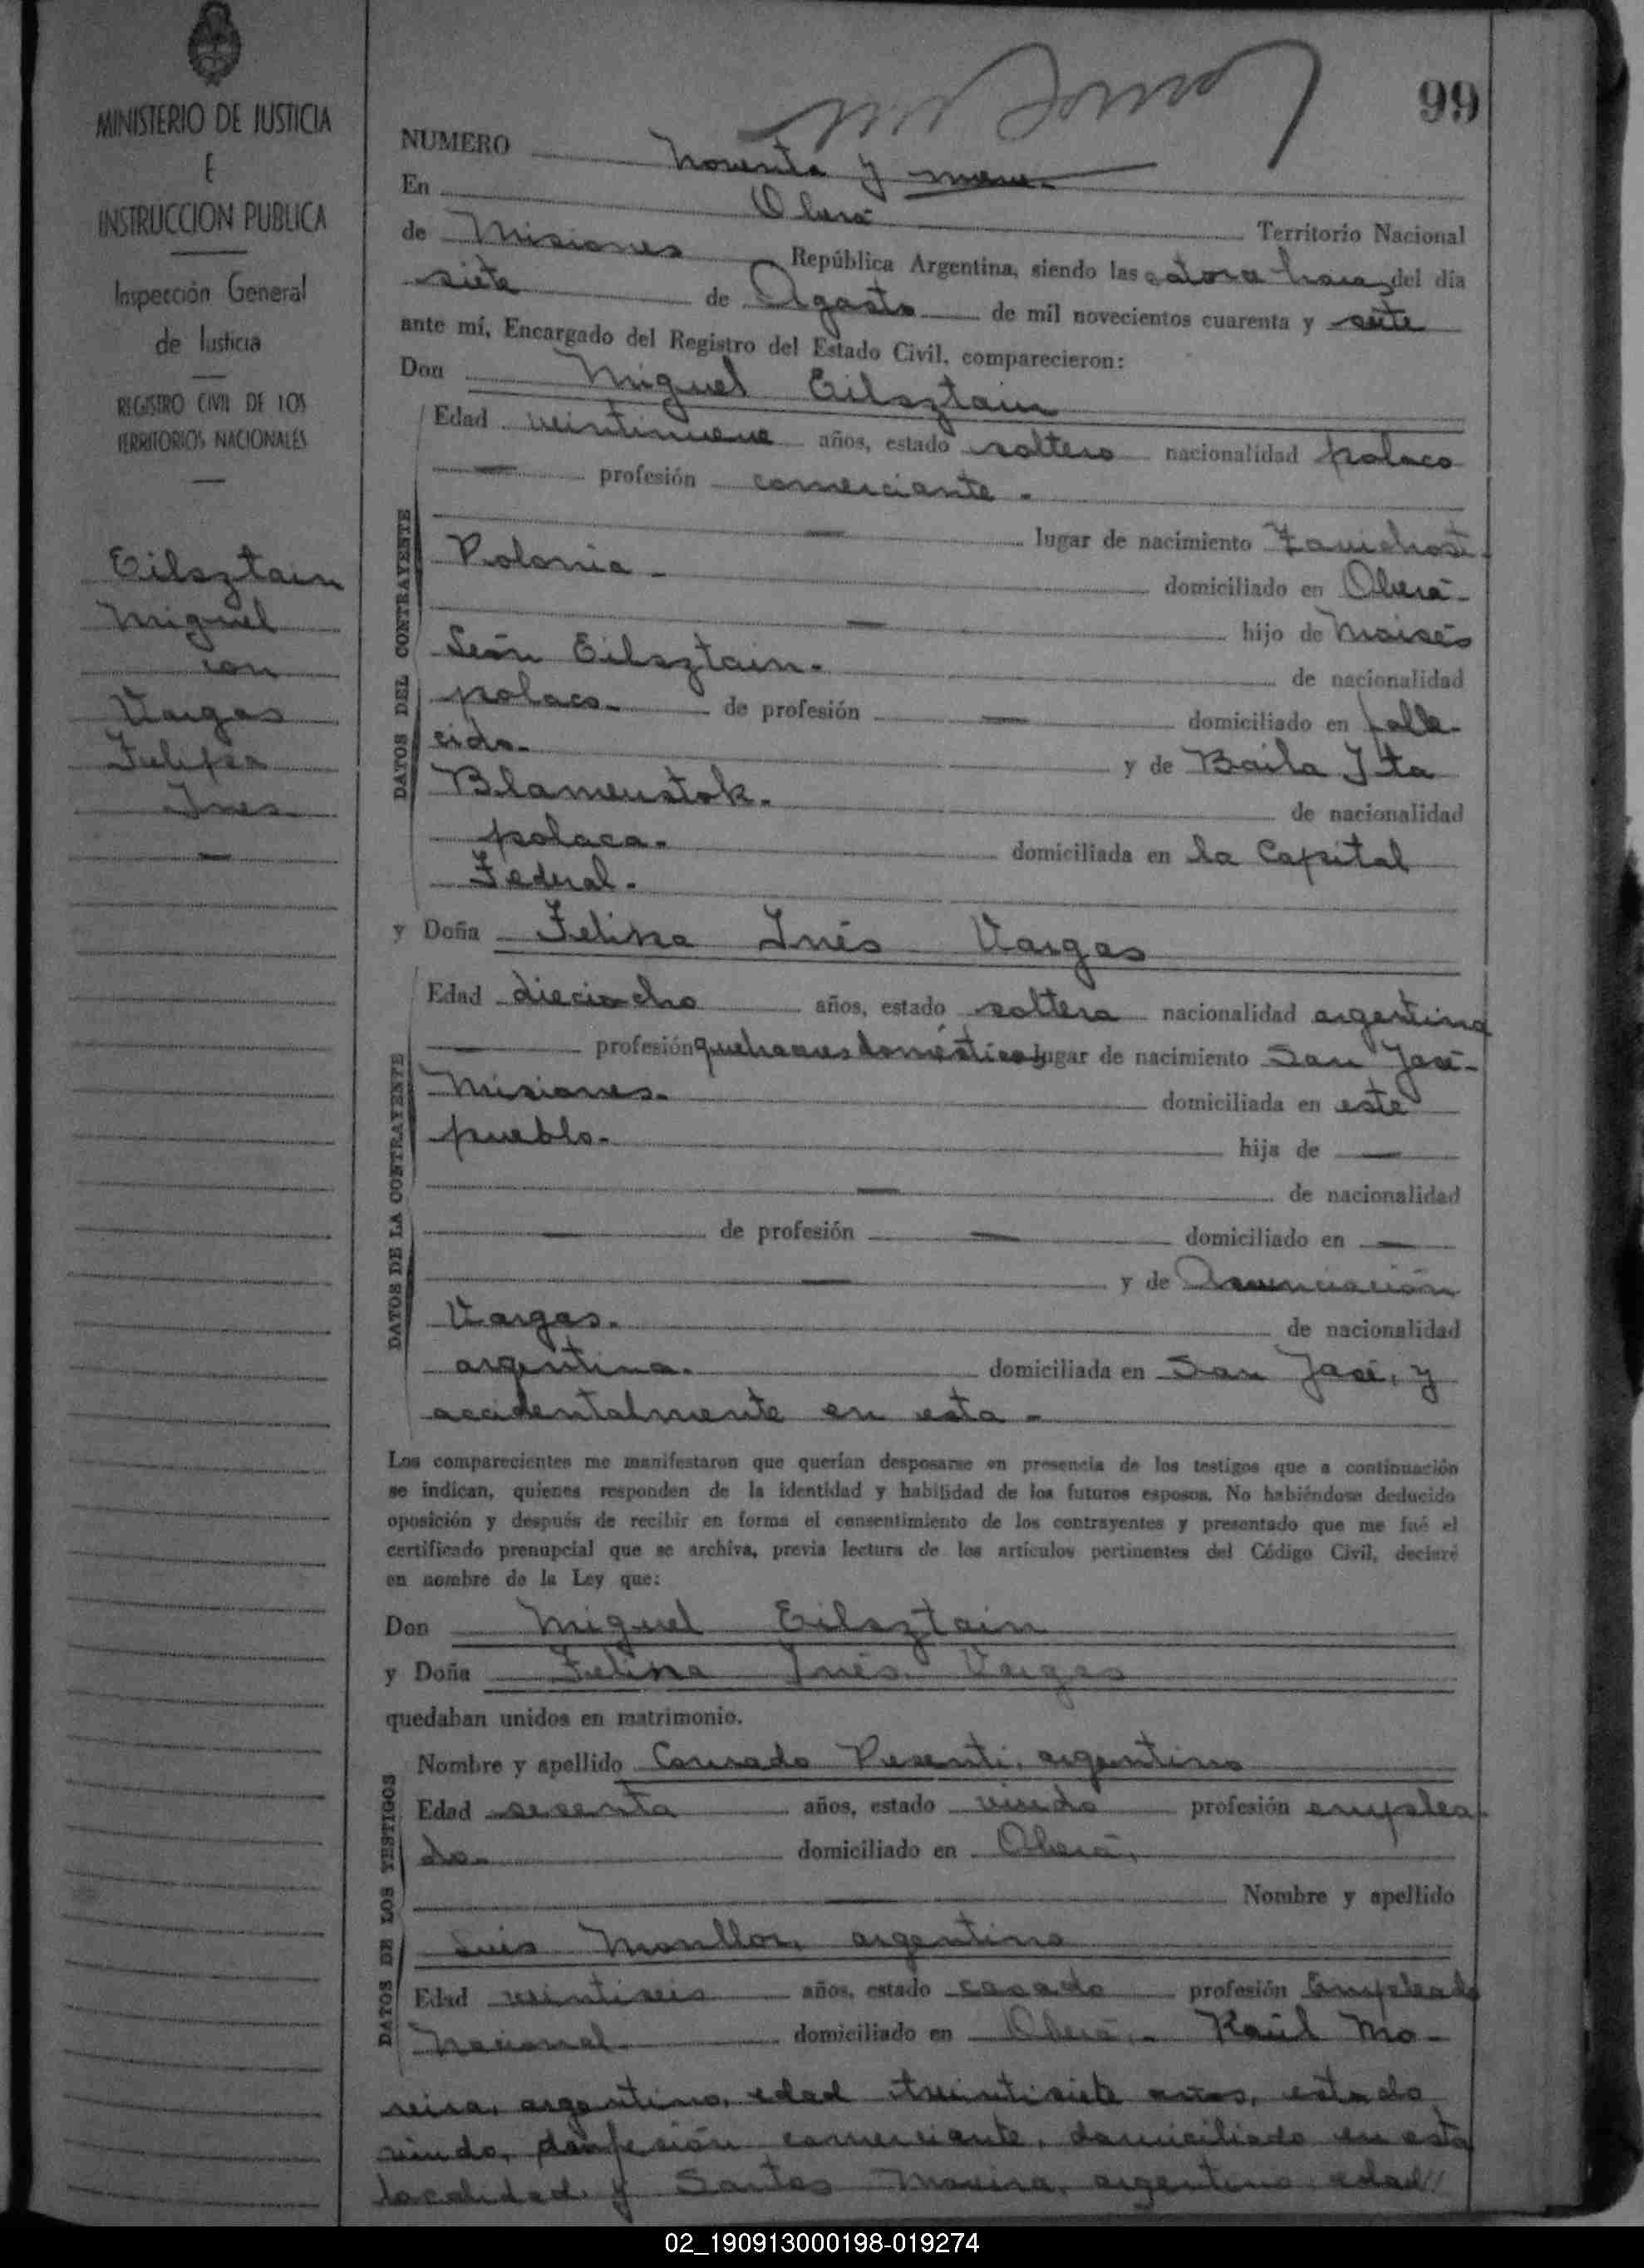 MINISTERIO DE JUSTICIA
E
INSTRUCCION PUBLICA
Inspección General
de Justicia
REGISTRO CIVIL DE LOS
TERRITORIOS NACIONALES
Eilsztain
Miguel
con
Vargas
Felipa
Ines
99
NUMERO noventa y nueve
En Oberá Territorio Nacional
de Misiones República Argentina, siendo las catorce horas del día
siete de Agosto de mil novecientos cuarenta y siete
ante mí, Encargado del Registro del Estado Civil, comparecieron:
Don Miguel Eilsztain
DATOS DEL CONTRAYENTE
Edad veintinueve años, estado soltero nacionalidad polaco
profesión comerciante.
lugar de nacimiento Zawichost.
Polonia. domiciliado en Oberá.
hijo de Moisés
León Eilsztain. de nacionalidad
polaco. de profesión domiciliado en falle-
cido. y de Baila Ita
Blameustok. de nacionalidad
polaca. domiciliada en la Capital
Federal.
y Doña Felipa Inés Vargas
DATOS DE LA CONTRAYENTE
Edad dieciocho años, estado soltera nacionalidad argentina
profesión quehaceres domésticos lugar de nacimiento San José-
Misiones. domiciliada en este
pueblo. hija de
de nacionalidad
de profesión domiciliado en
y de Asunción
Vargas. de nacionalidad
argentina. domiciliada en San José, y
accidentalmente en esta.
Los comparecientes me manifestaron que querían desposarse en presencia de los testigos que a continuación
se indican, quienes responden de la identidad y habilidad de los futuros esposos. No habiéndose deducido
oposición y después de recibir en forma el consentimiento de los contrayentes y presentado que me fué el
certificado prenupcial que se archiva, previa lectura de los artículos pertinentes del Código Civil, declaré
en nombre de la Ley que:
Don Miguel Eilsztain
y Doña Felipa Inés Vargas
quedaban unidos en matrimonio.
DATOS DE LOS TESTIGOS
Nombre y apellido Conrado Pesenti, argentino
Edad sesenta años, estado viudo profesión emplea-
do. domiciliado en Oberá,
Nombre y apellido
Luis Monllor, argentino
Edad veintiseis años, estado casado profesión Empleado
Nacional domiciliado en Oberá,- Raúl Mo-
reira, argentino, edad treintisiete años, estado
viudo, profesión comerciante, domiciliado en esta
localidad y Santos Moreira, argentino, edad//
02_190913000198-019274